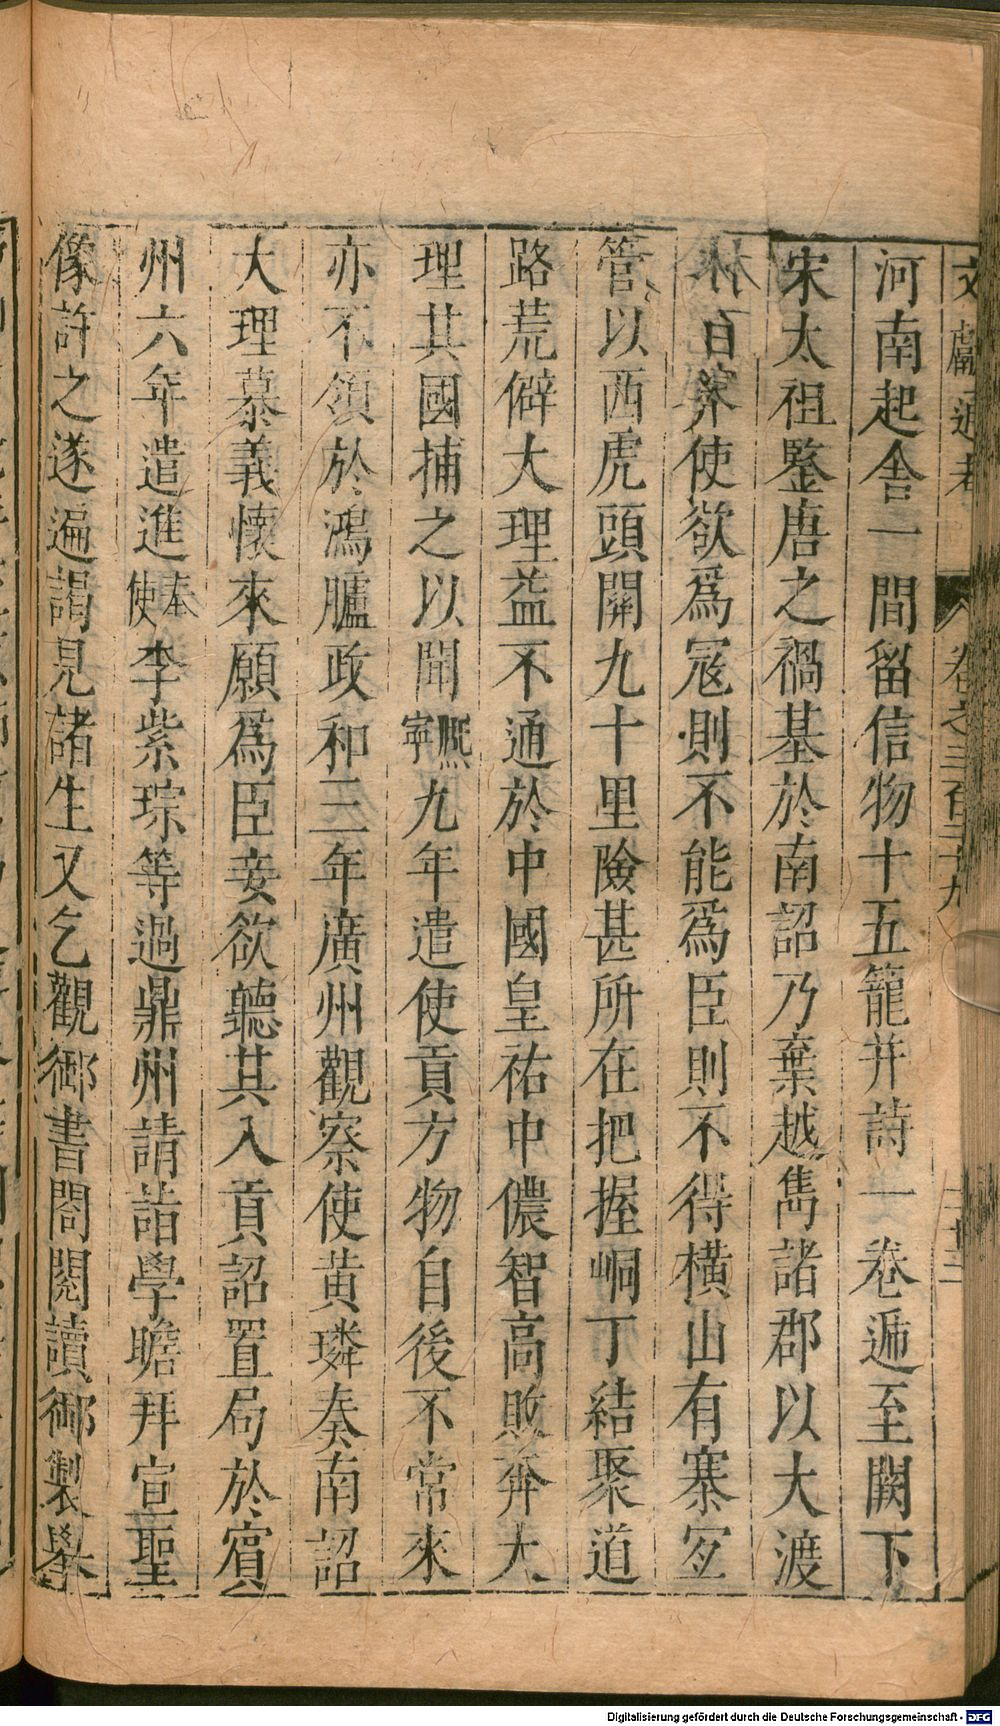 文獻通考 卷之三百二十九 二十二
河南起舎一間留信物十五籠并詩一卷遞至闕下
宋太祖鑒唐之禍基於南詔乃棄越雋諸郡以大渡
使欲爲冦則不能爲臣則不得橫山有寨
管以西虎頭關九十里險甚所在把握峒丁結聚道
路荒僻大理益不通於中國皇祐中儂智高敗奔大
理其國捕之以聞熙寧九年遣使貢方物自後不常來
亦不領於鴻臚政和三年廣州觀察使黃璘奏南詔
大理慕義懷來願爲臣妾欲聽其入貢詔置局於賔
州六年遣進奉使李紫琮等過鼎州請詣學瞻拜宣聖
像許之遂遍謁見諸生又乞觀御書閣閱讀御製舉
Digitalisierung gefördert durch die Deutsche Forschungsgemeinschaft - DFG